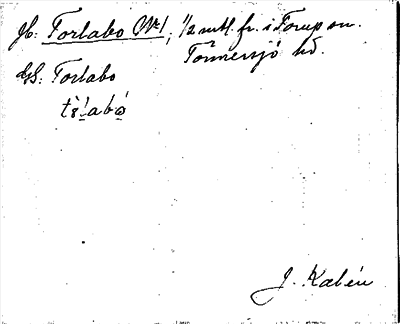 Jb: Torlabo Nr 1, 1/2 mtl. fr. i Torup sn.
Tönnersjö hd.
GS: Torlabo
J. Kalén